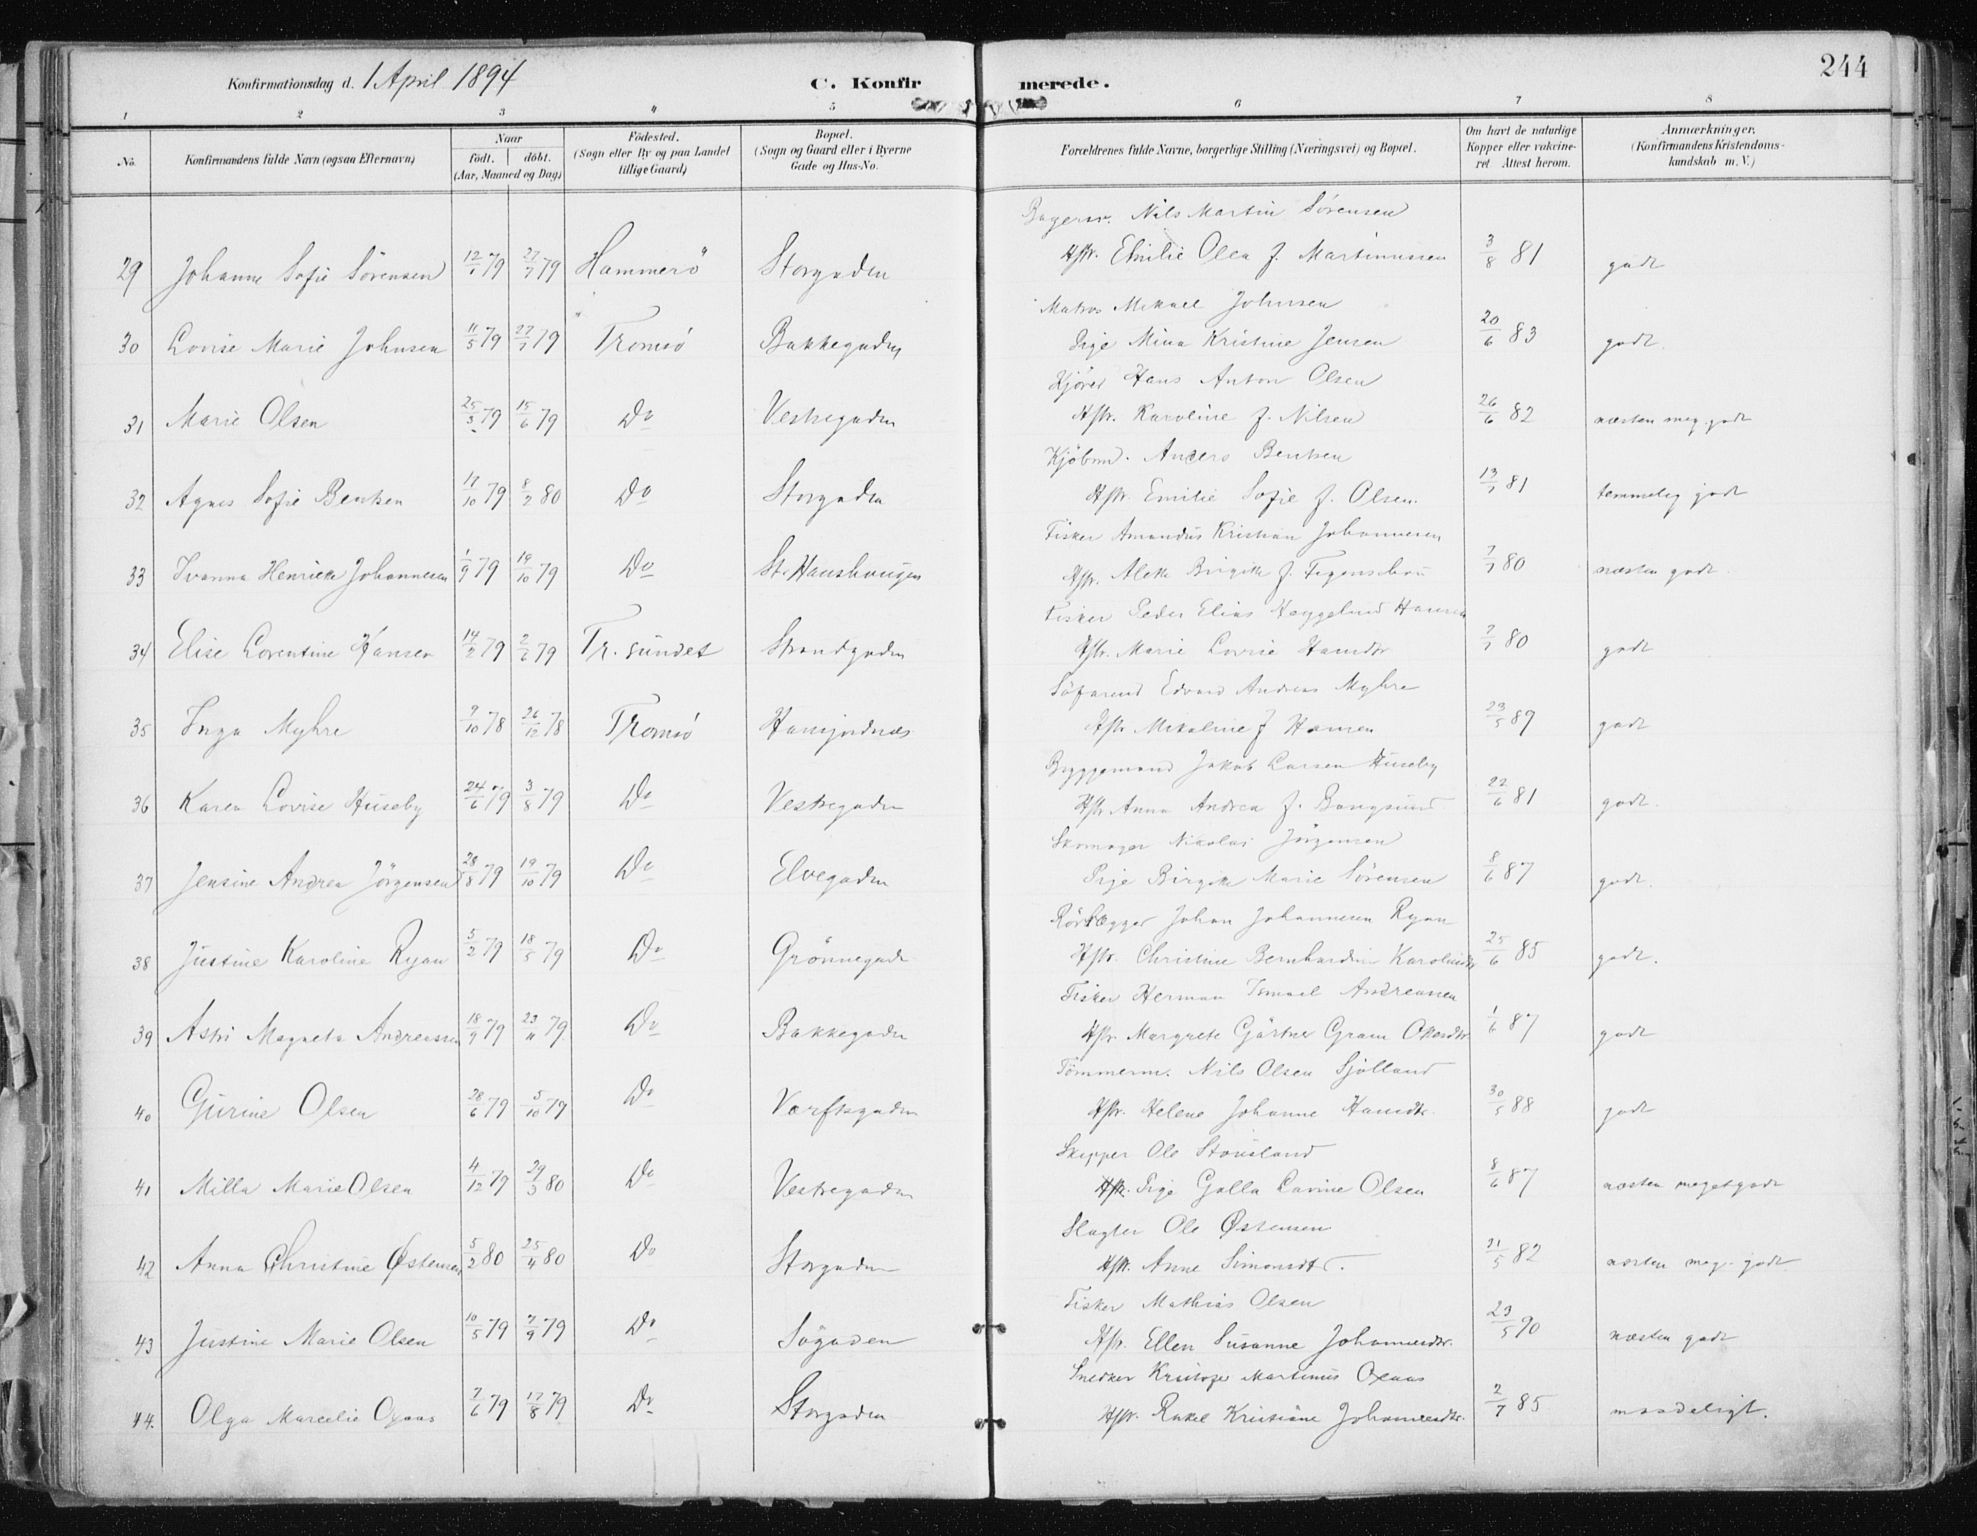 Konfirmationsdag d. 1 April 1894 C. Konfirmerede. 244
1 2 3 " 5 6 7 8
No. Konfirmandens fulde Navn (ogsaa Efternavn) Naar födt. döbt. (Aar, Maaned og Dag) Födested. (Sogn eller By og paa Landet tillige Gaard) Bopæl. (Sogn og Gaard eller i Byerne Gade og Hus-No. Forældrenes fulde Navne, borgerlige Stilling (Næringsvei) og Bopæl. Om havt de naturlige Kopper eller vakcineret. Attest herom. Anmærkninger. (Konfirmandens Kristendomskundskab m. V.)
Nils Martin Sörensen
29 Johanne Sofie Sörensen 79 79 Hammerö Storgaden Hstr. Emilie Olea f. Martinussen 3/8 81 godt
Matros Mikael Johnsen
30 Lovise Marie Johnsen 11/5 79 27/7 79 Tromsö Bakkegaden Pige Mina Kristine Jensen 20/6 83 godt.
Kjörer Hans Anton Olsen
31 Marie Olsen 25/3 79 15/6 79 Do Vestregaden Hstr. Karoline f. Nilsen 26/6 82 næsten meg. godt
Kjöbmd. Anders Bentsen
32 Agnes Sofie Bentsen 17/10 79 8/2 80 Do Storgaden Hstr. Emilie Sofie f. Olsen. 13/7 81 temmelig godt
Fisker Amandus Kristian Johannesen
33 Ivanna Henrikke Johannesen 1/9 79 19/10 79 Do St. Hanshaugen Hstr. Alette Birgitte f. Figenschou 7/7 80 næsten godt
Fisker Peder Elias Hæggelund Hansen
34 Elise Lorentine Hansen 14/2 79 2/6 79 Tr. sundet Strandgaden Hstr. Marie Lovise Hansdtr 7/7 80 godt
Söfarend Edvard Andreas Myhre
35 Inga Myhre 9/10 78 26/12 78 Tromsö Hansjordnæs Hstr Mikaline f Hansen 23/5 89 godt
Byggemand Jakob Larsen Huseby
36 Karen Lovise Huseby 24/6 79 3/8 79 Do Vestregaden Hstr Anna Andrea f. Bangsund 22/6 81 godt.
Skomager Nikolai Jörgensen
37 Jensine Andrea Jörgensen 28/8 79 19/10 79 Do Elvegaden Pige Birgitte Marie Sörensen 8/6 87 godt.
Rörlægger Johan Johannesen Ryan
38 Justine Karoline Ryan 5/2 79 18/5 79 Do Grönnegade Hstr. Christine Bernhardine Karolindtr 25/6 85 godt.
Fisker Herman Ismael Andreassen
39 Astri Magneta Andreassen 18/9 79 23/11 79. Do Bakkegaden Hstr. Margrete Gärtner Gram 1/6 87 godt
Tömmerm. Nils Olsen Sjölland
40 Gurine Olsen 28/6 79 5/10 79 Do Værftsgaden Hstr. Helene Johanne Hansdtr. 30/5 88 godt
Skipper Ole Stousland
41 Milla Marie Olsen 4/12 79 29/3 80 Do Vestregaden Pige Golla Lavine Olsen 8/6 87 næsten megetgodt
Slagter Ole Østensen
42 Anna Christine Østensen 5/2 80 25/4 80 Do Storgaden Hstr. Anne Simonsdtr. 21/5 82 næsten meg. godt
Fisker Mathias Olsen
43 Justine Marie Olsen 10/5 79 7/9 79 Do Sögaden Hstr. Ellen Susanne Johannesdtr. 23/5 90 næsten godt
Snedker Kristofer Martinus Oxaas
44. Olga Marcelie Oxaas 7/6 79 17/8 79 Do Storgaden Hstr. Rakel Kristiane Johannesdtr. 2/7 85 maadeligt.